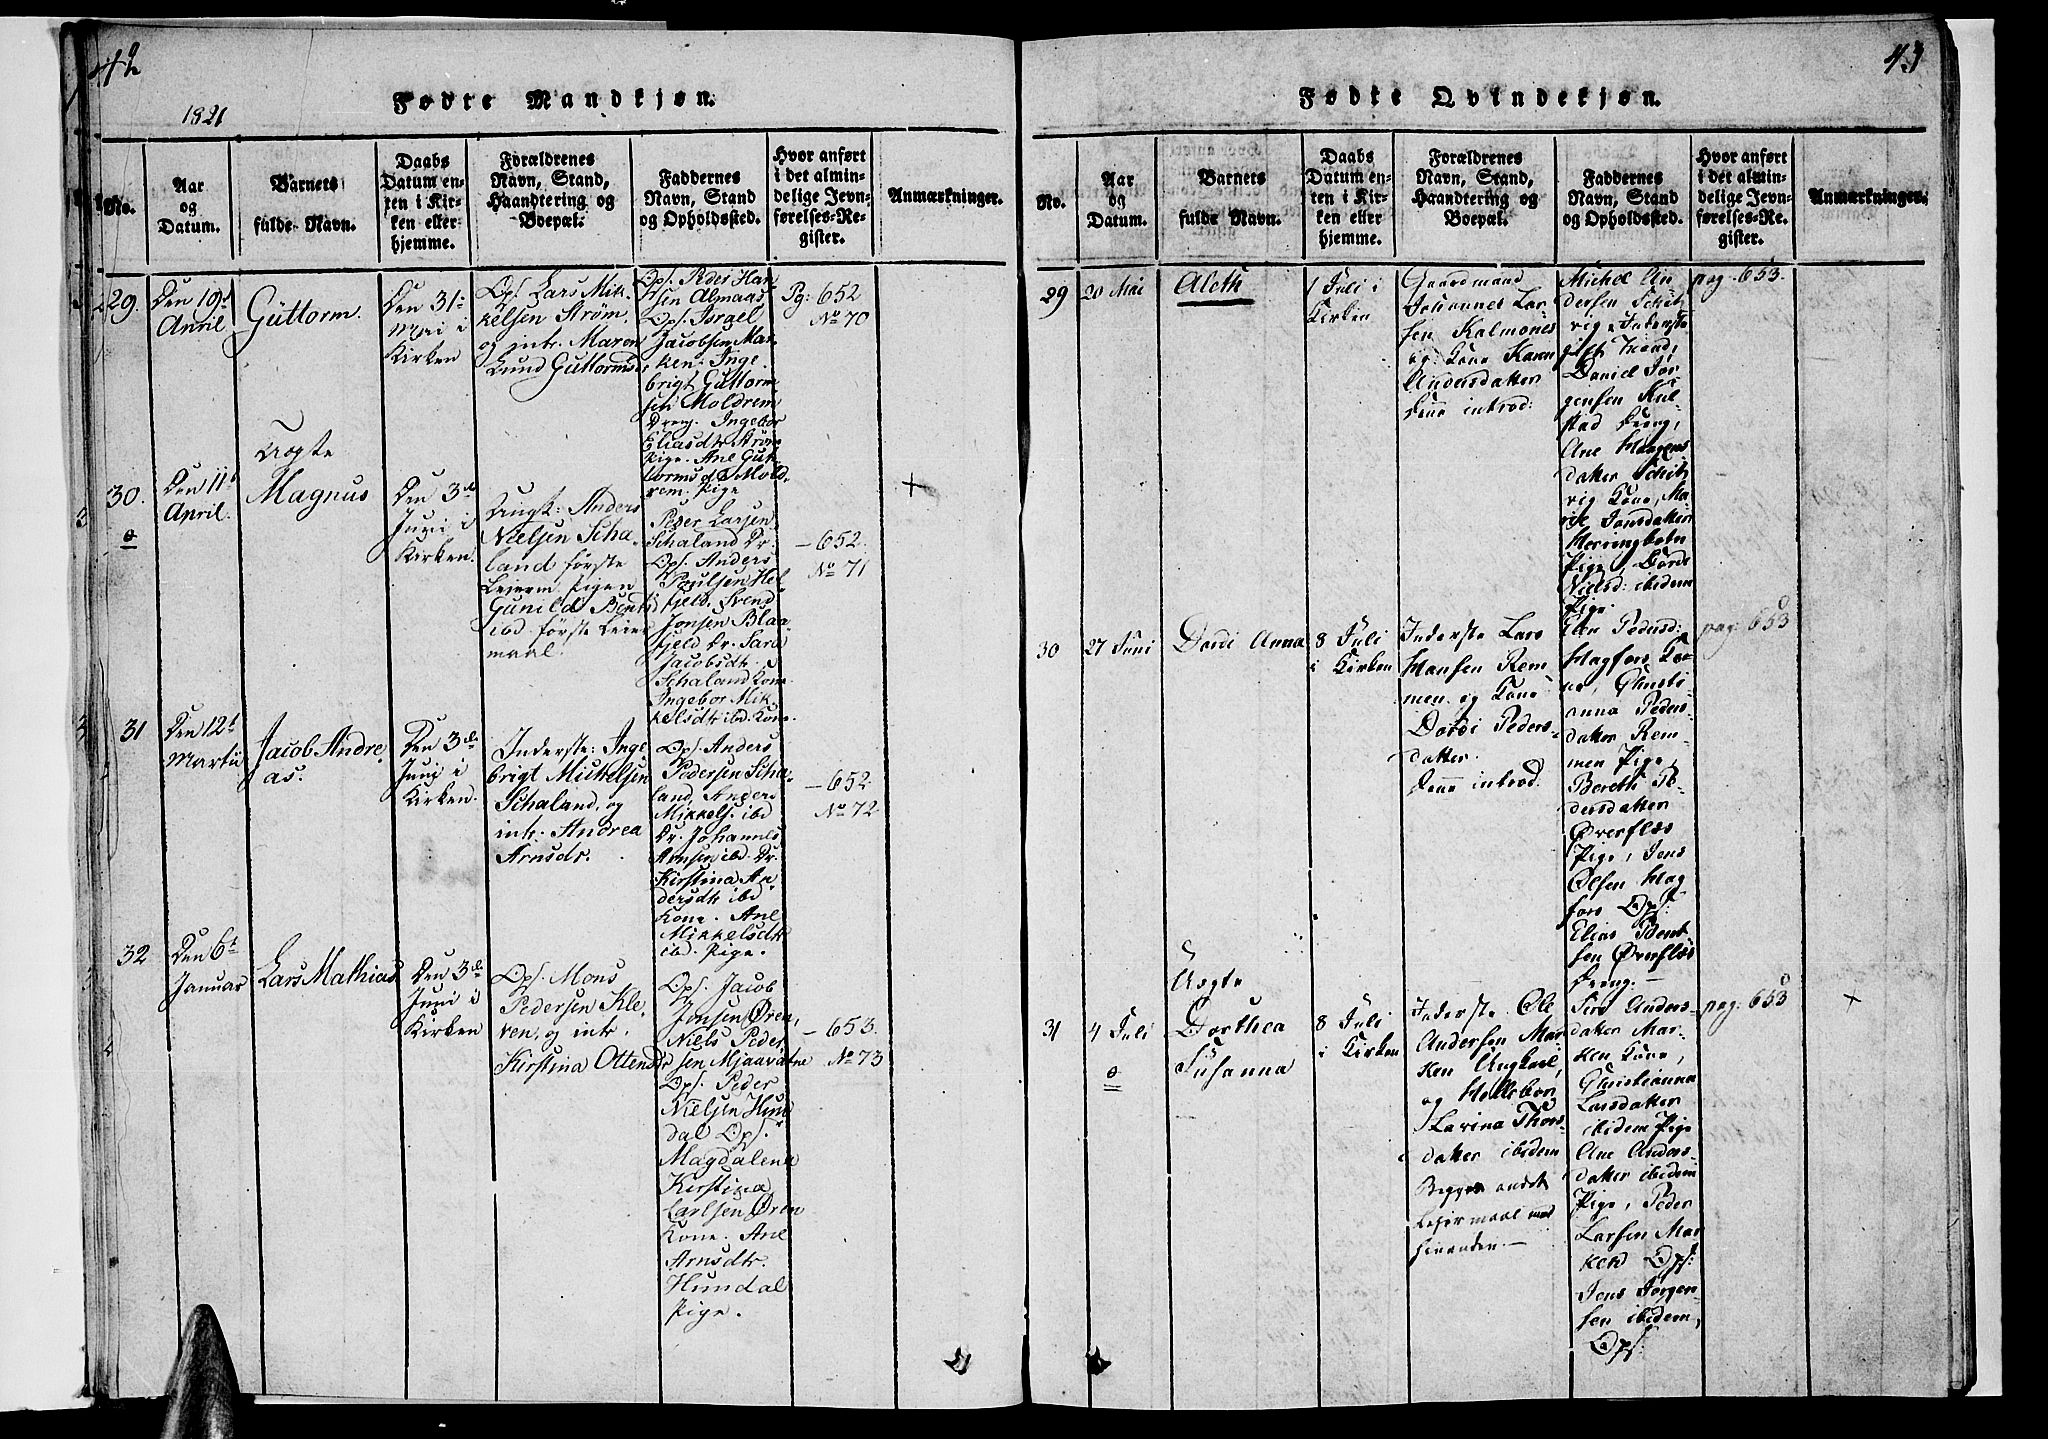 42
1821
Fødte Mandkjøn.
No.
Aar
og
Datum.
Barnets
fulde Navn.
Daabs
Datum en-
ten i Kir-
ken eller
hjemme.
Forældrenes
Navn, Stand,
Haandtering og
Boepæl.
Faddernes
Navn, Stand
og Opholdssted.
Hvor anført
i det almin-
delige Jevn-
førelses-Re-
gister.
Anmærkninger.
29.
Den 19d
April
Guttorm.
Den 31=
Mai i
Kirken
Ops. Lars Mik-
kelsen Strøm,
og intr. Maren
Lund Guttormsd
Ops. Peder Han-
sen Almaas
Ops. Israel
Jacobsen Mar-
ken. Inge
brigt Guttorm
sen Moldrem
Dreng. Ingebor
Eliasdtr Strøm
Pige. Ane Gut-
tormsd Mold-
rem. Pige
Pg: 652
No 70
30.
Den 11t
April.
Uægte
Magnus
Den 3de
Juni i
Kirken.
Ungk: Anders
Nielsen Scha-
land første
Leierm Pigen
Gunild Bentsd
ibd første Leier
maal.
Peder Larsen
Schaland Dr.
Ops. Anders
Poulsen Hel-
fjeld. Svend
Jonsen Blaa-
fjeld Dr. Sara
Jacobsdtr.
Schaland Kone.
Ingebor Mik-
kelsdtr ibd. Kone.
– 652.
No 71
+
31
Den 12t
Martii
Jacob Andre
as.
Den 3de
Juni i
Kirken.
Inderste: Inge
brigt Michelsen
Schaland, og
intr. Andrea
Arnsdr.
Ops. Anders
Pedersen Scha-
land, Anders
Mikkels. ibd
Dr. Johannes
Arnsen ibd. Dr.
Kirstina An-
dersdtr ibd
Kone. Ane
Mikkelsdtr
ibd. Pige.
– 652.
No 72
32
Den 6t
Januar
Lars Mathias
Den 3de
Juni i
Kirken
Ops. Mons
Pedersen Kle-
ven, og intr.
Kirstina Ottensdr
Ops. Jacob
Jonsen Øren,
Niels Peder
sen Mjaavatne
Ops. Peder
Nielsen Hun
dal Ops.
Magdalena
Kirstina
Carlsen Øren
Kone. Ane
Arnsdtr.
Hundal
Pige.
– 653.
No 73
43
Fødte Qvindekjøn.
No.
Aar
og
Datum.
Barnets
fulde Navn.
Daabs
Datum en-
ten i Kir-
ken eller
hjemme.
Forældrenes
Navn, Stand,
Haandtering og
Boepæl.
Faddernes
Navn, Stand
og Opholdssted.
Hvor anført
i det almin-
delige Jevn-
førelses-Re-
gister.
Anmærkninger.
29
20 Mai
Aleth
1 Juli i
Kirken
Gaardmand
Johannes Lar-
sen Kalmones
og Kone Karen
Andersdatter
Kone introd:
Michel An
dersen
rig, Inderste
gift Mand,
Daniel Jør
gensen Kul-
stad Dreng,
Ane Mogens
datter
rig Kone, Ma-
rit Jonsdatter
Herringbotn
Pige, Dordi
Nielsd: ibidem
Pige.
pag. 653.
30
27 Juni
Dordi Anna
8 Juli
i Kirken
Inderste Lars
Hansen Rem-
men og Kone
Dordi Peders-
datter.
Kone introd.
Elen Pedersd:
Hagfors Ko-
ne, Christi-
anna Peders-
datter Rem-
men Pige,
Bereth Pe-
dersdatter
Øverflæs
Pige, Jens
Olsen Hag
fors Ops.
Elias Bent
sen Øverflæs
Dreng. –
pag: 653
31
4 Juli
Uægte
Dorthea
Susanna
8 Juli
i Kirken
Inderste Ole
Andersen Mar
ken Ungkarl,
og
Lavina Thors-
datter ibidem
Begges andet
Leiermaal med
hinanden. –
Siri Anders-
datter Mar-
ken Kone,
Christianna
Larsdatter
ibidem Pige
Ane Anders-
datter ibidem
Pige, Peder
Larsen Mar
ken Ops:
Jens Jørgen-
sen ibidem,
Ops:
pag: 653
+